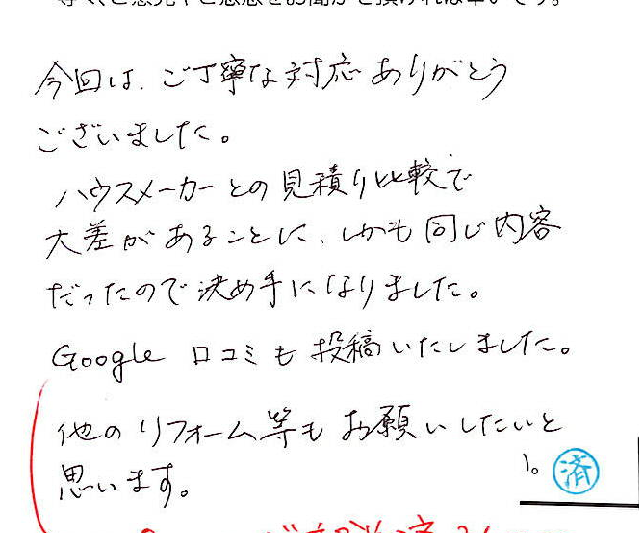 今回は、ご丁寧な対応ありがとう
ございました。
ハウスメーカーとの見積り比較で
大差があることに、しかも同じ内容
だったので決め手になりました。
Google 口コミも投稿いたしました。
他のリフォーム等もお願いしたいと
思います。
済